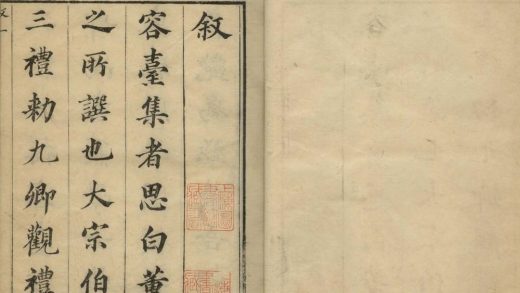 叙
容臺集者思白董
之所譔也大宗伯
三禮勅九卿觀禮